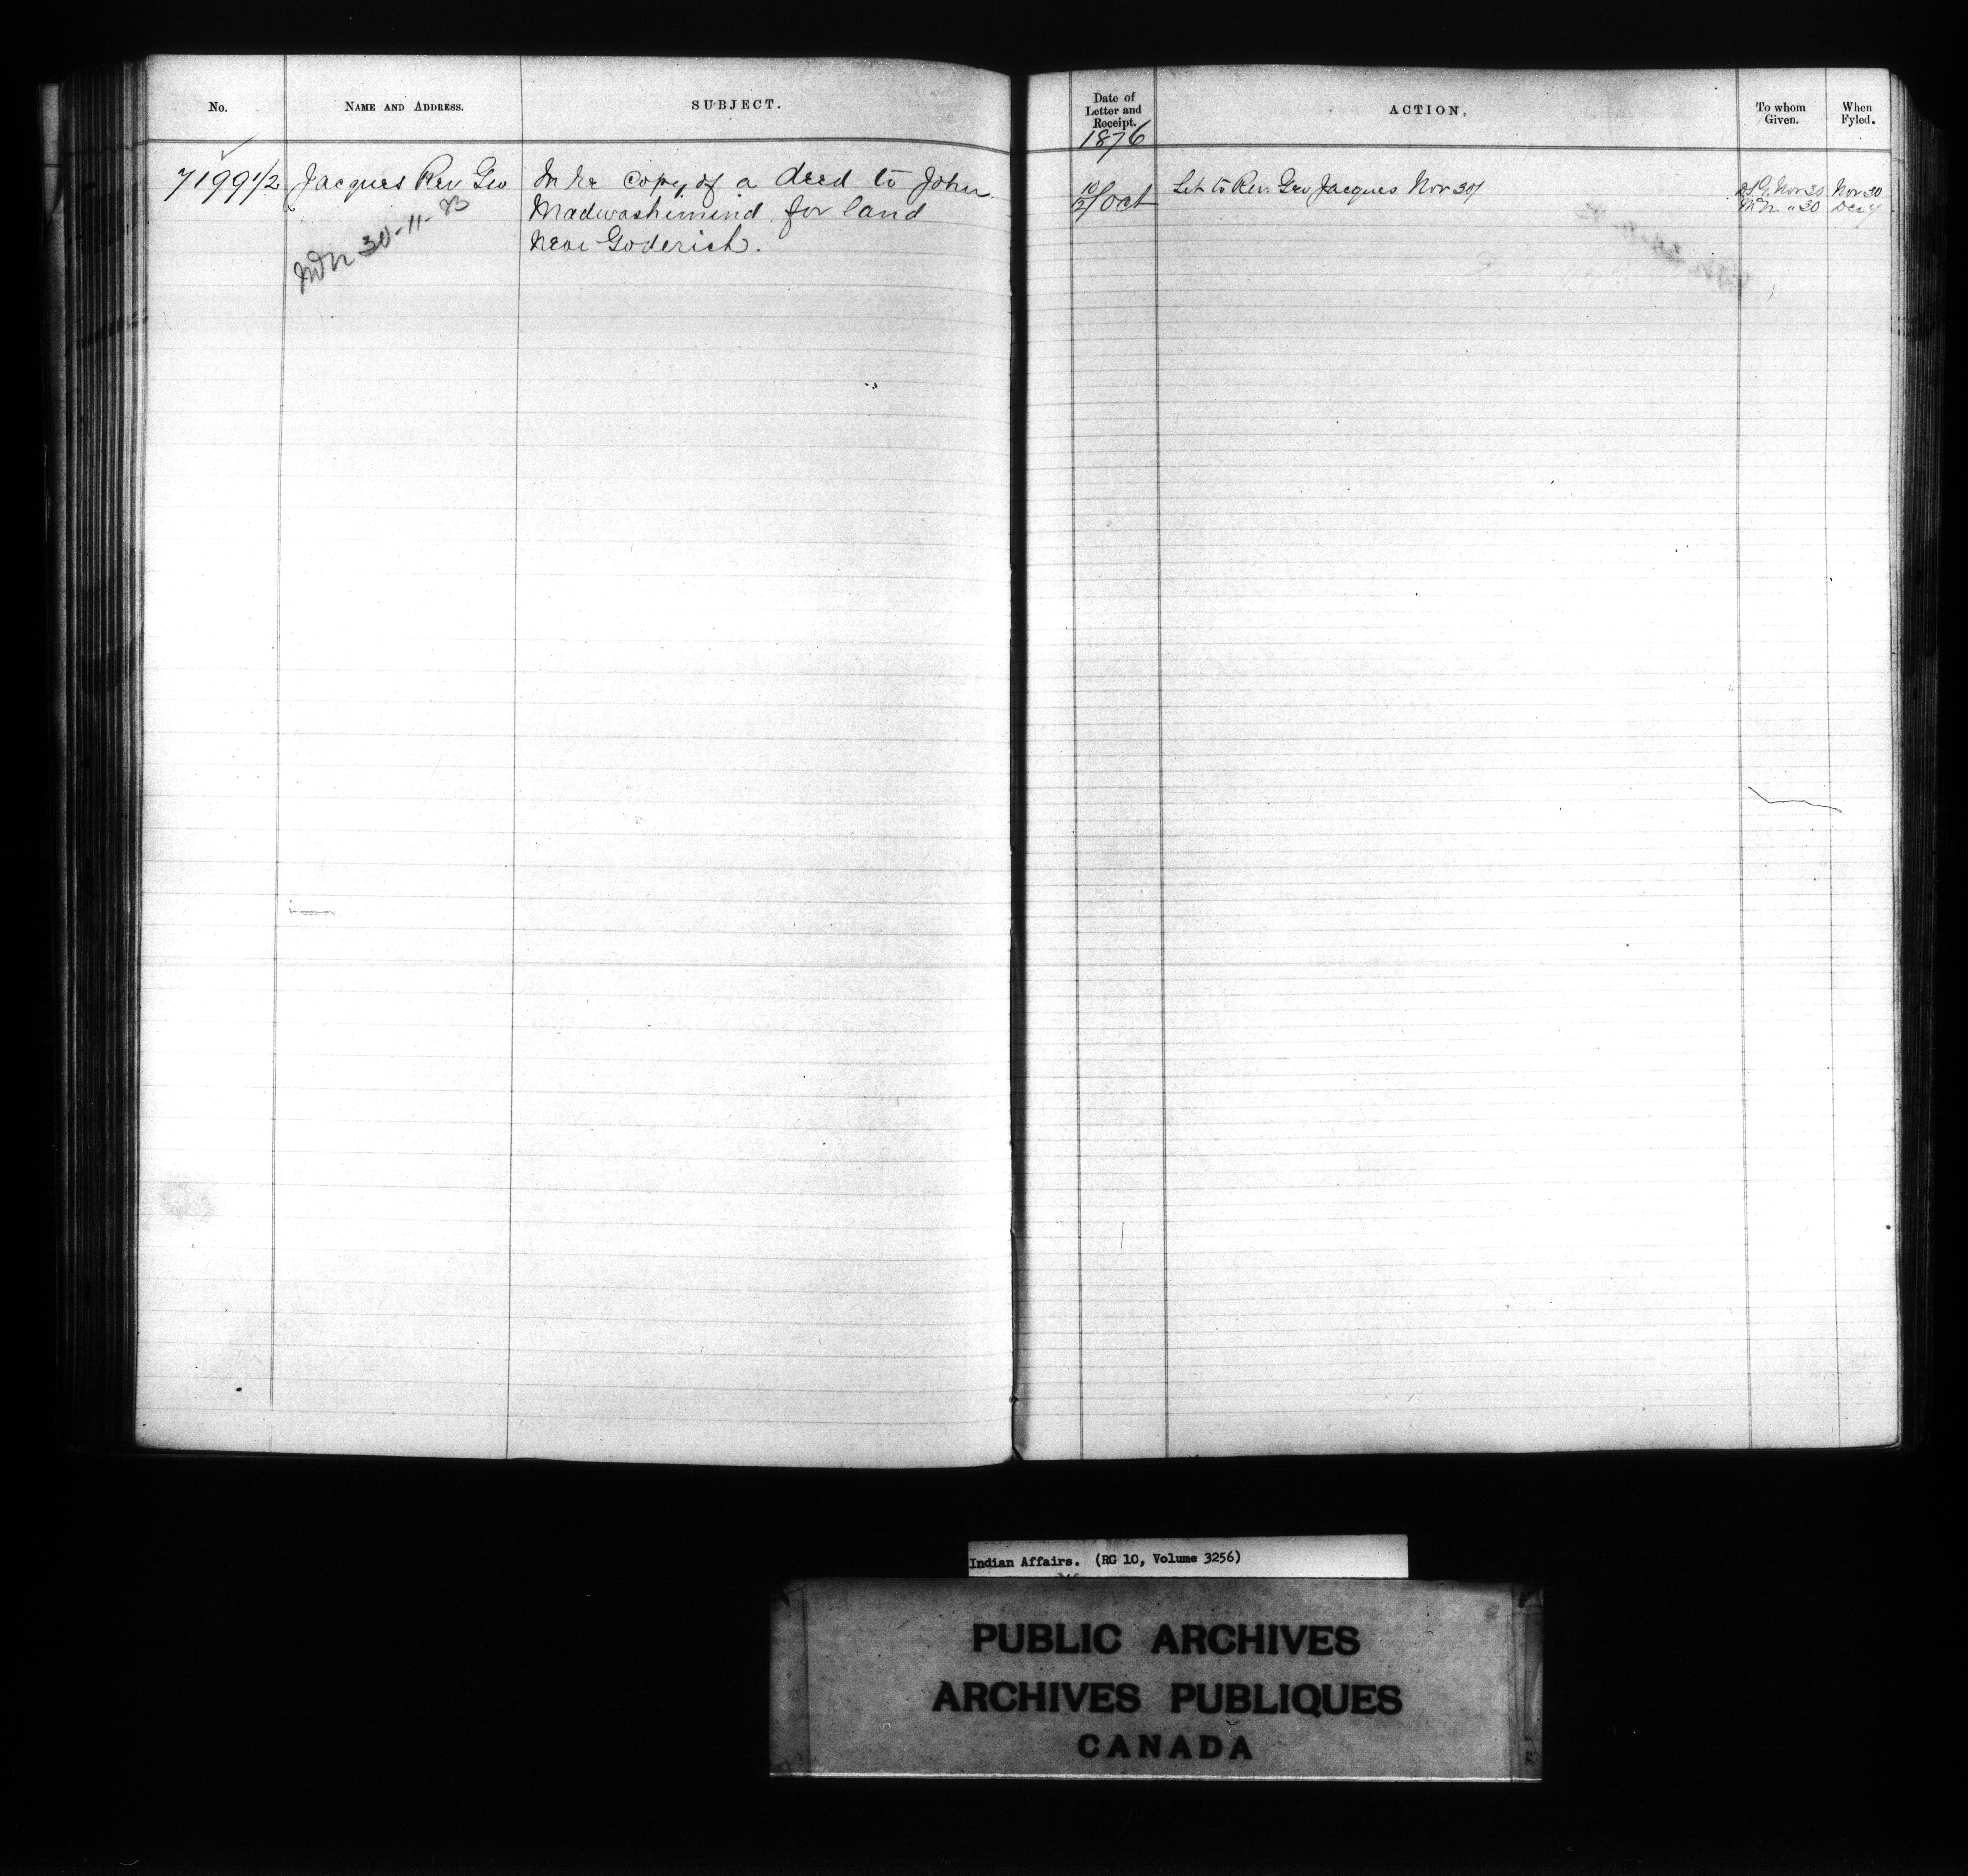 No.
NAME AND ADDRESS.
SUBJECT.
7199 1/2
Jacques Rev Geo
In re copy of a deed to John
Madwashimind for land
near Goderich.
30-11-
Date of
Letter and
Receipt.
1876
ACTION,
To whom
Given.
When
Fyled.
10/21 Oct
Let to Rev. Geo Jacques Nov 30/
Nov 30
Nov 30
" 30
Dec
Indian Affairs. (RG 10, Volume 3256)
PUBLIC ARCHIVES
ARCHIVES PUBLIQUES
CANADA